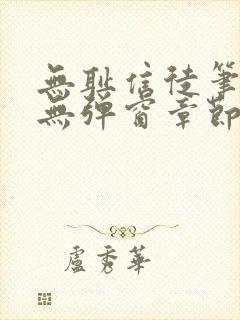 無恥信徒筆
無彈窗章節
盧秀華